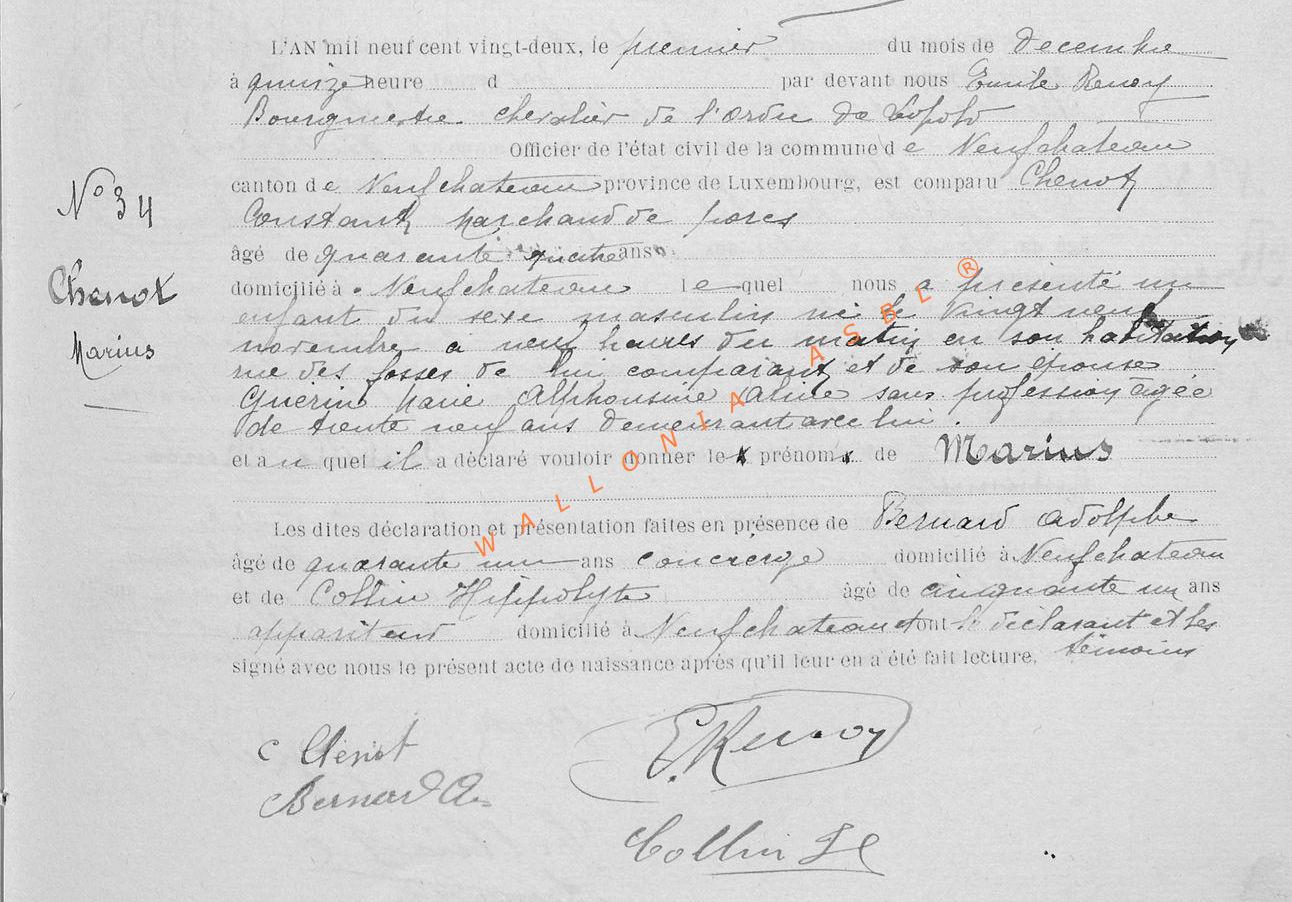 L'AN mil neuf cent vingt-deux, le premier du mois de decembre
à quinze heure d par devant nous Emile Renoy
Bourgmestre. Chevalier de l'Ordre de Léopold
Officier de l'état civil de la commune de Neufchateau
N° 34
canton de Neufchateau province de Luxembourg, est comparu Chenot
Constant, Marchand de porcs
âgé de quarante quatre ans
Chenot
domicilié à Neufchateau lequel nous a présenté un
enfant du sexe masculin né le vingt neuf
Marius
novembre a neuf heures du matin en son habitation
rue des fosses de lui comparant et de son épouse
Guerin Marie Alphonsine Aline sans profession agée
de trente neuf ans demeurant avec lui.
et auquel il a déclaré vouloir donner le prénom de Marius
Les dites déclaration et présentation faites en présence de Bernard Adolphe
âgé de quarante un ans concierge domicilié à Neufchateau
et de Collin Hippolyte âgé de cinquante un ans
appariteur domicilié à Neufchateau et ont le déclarant et les
signé avec nous le présent acte de naissance après qu'il leur en a été fait lecture, témoins
C Chenot
E. Renoy
Bernard A
Collin H
WALLONIA ASBL ®